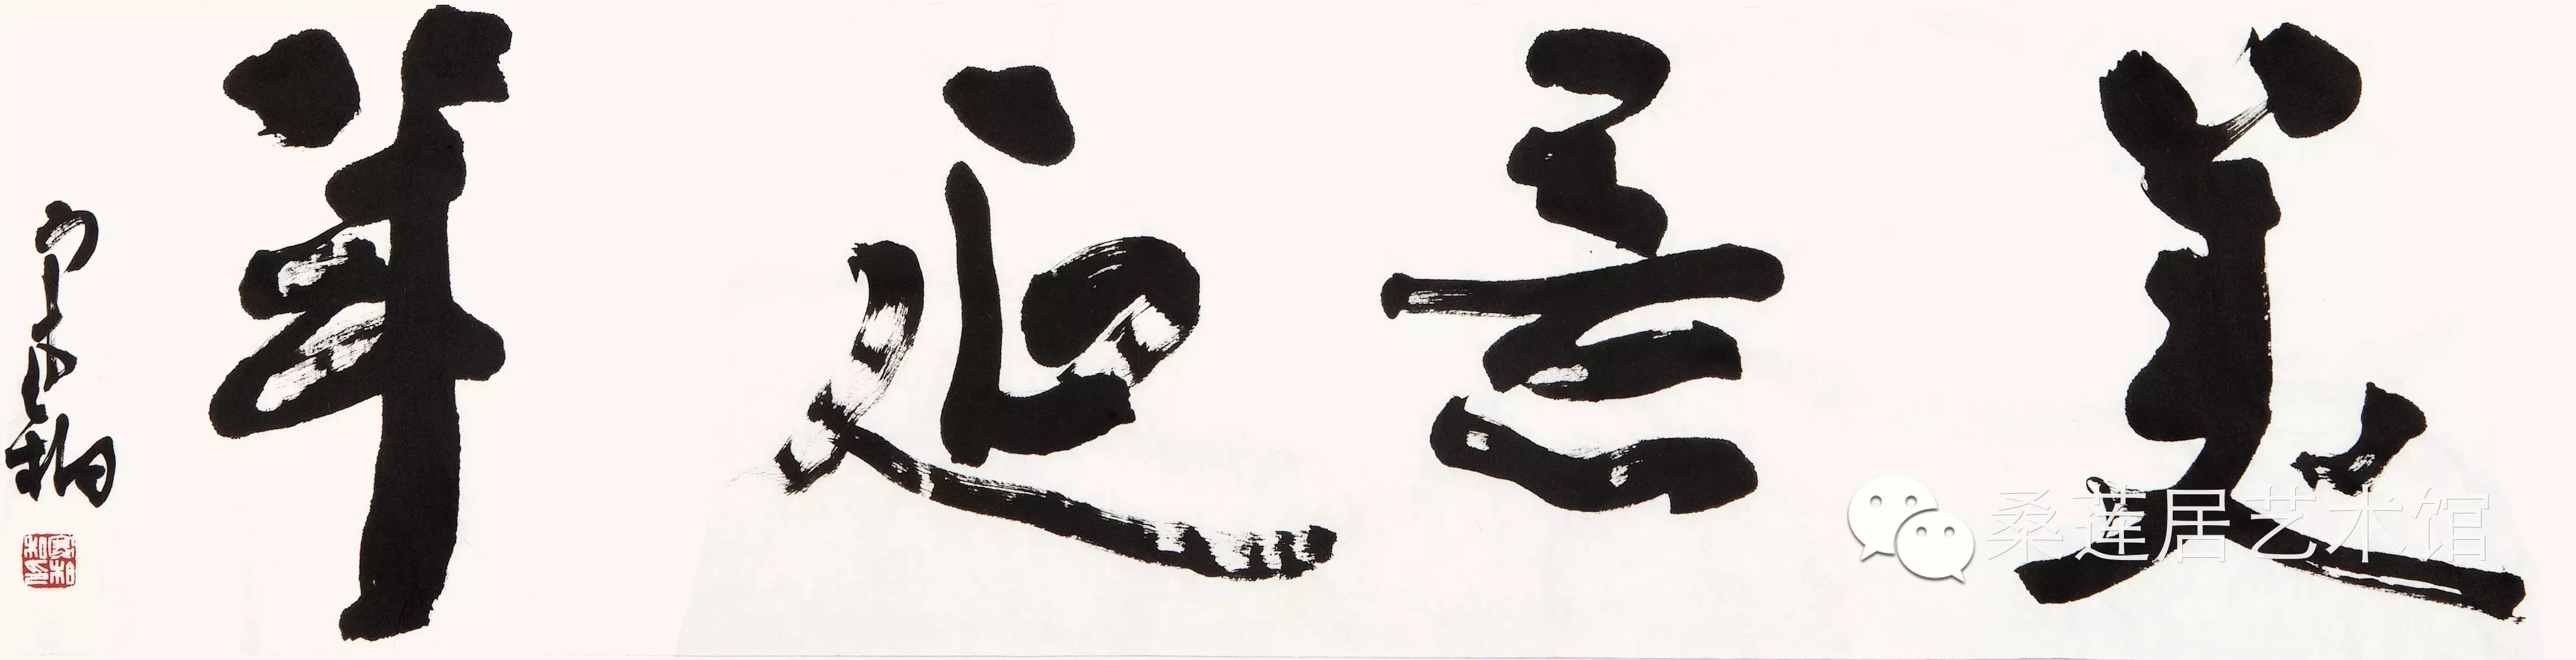 美意延年
桑莲居艺术馆